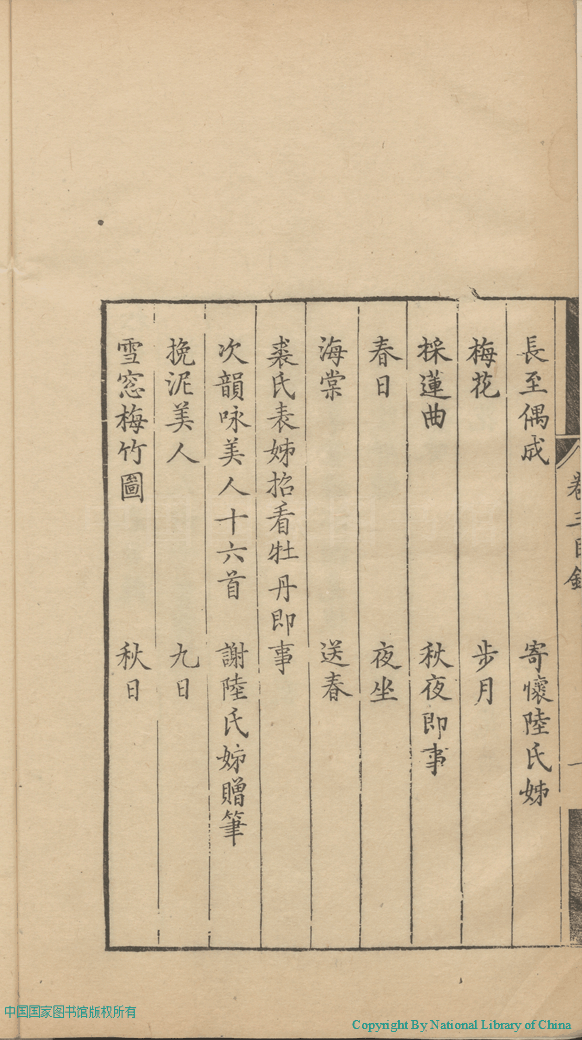 長至偶成 寄懷陸氏姊
梅花 步月
採蓮曲 秋夜即事
春日 夜坐
海棠 送春
裘氏表姊招看牡丹即事
次韻咏美人十六首 謝陸氏姊贈筆
挽泥美人 九日
雪窓梅竹圖 秋日
卷三目錄
一
中国国家图书馆版权所有
Copyright By National Library of China